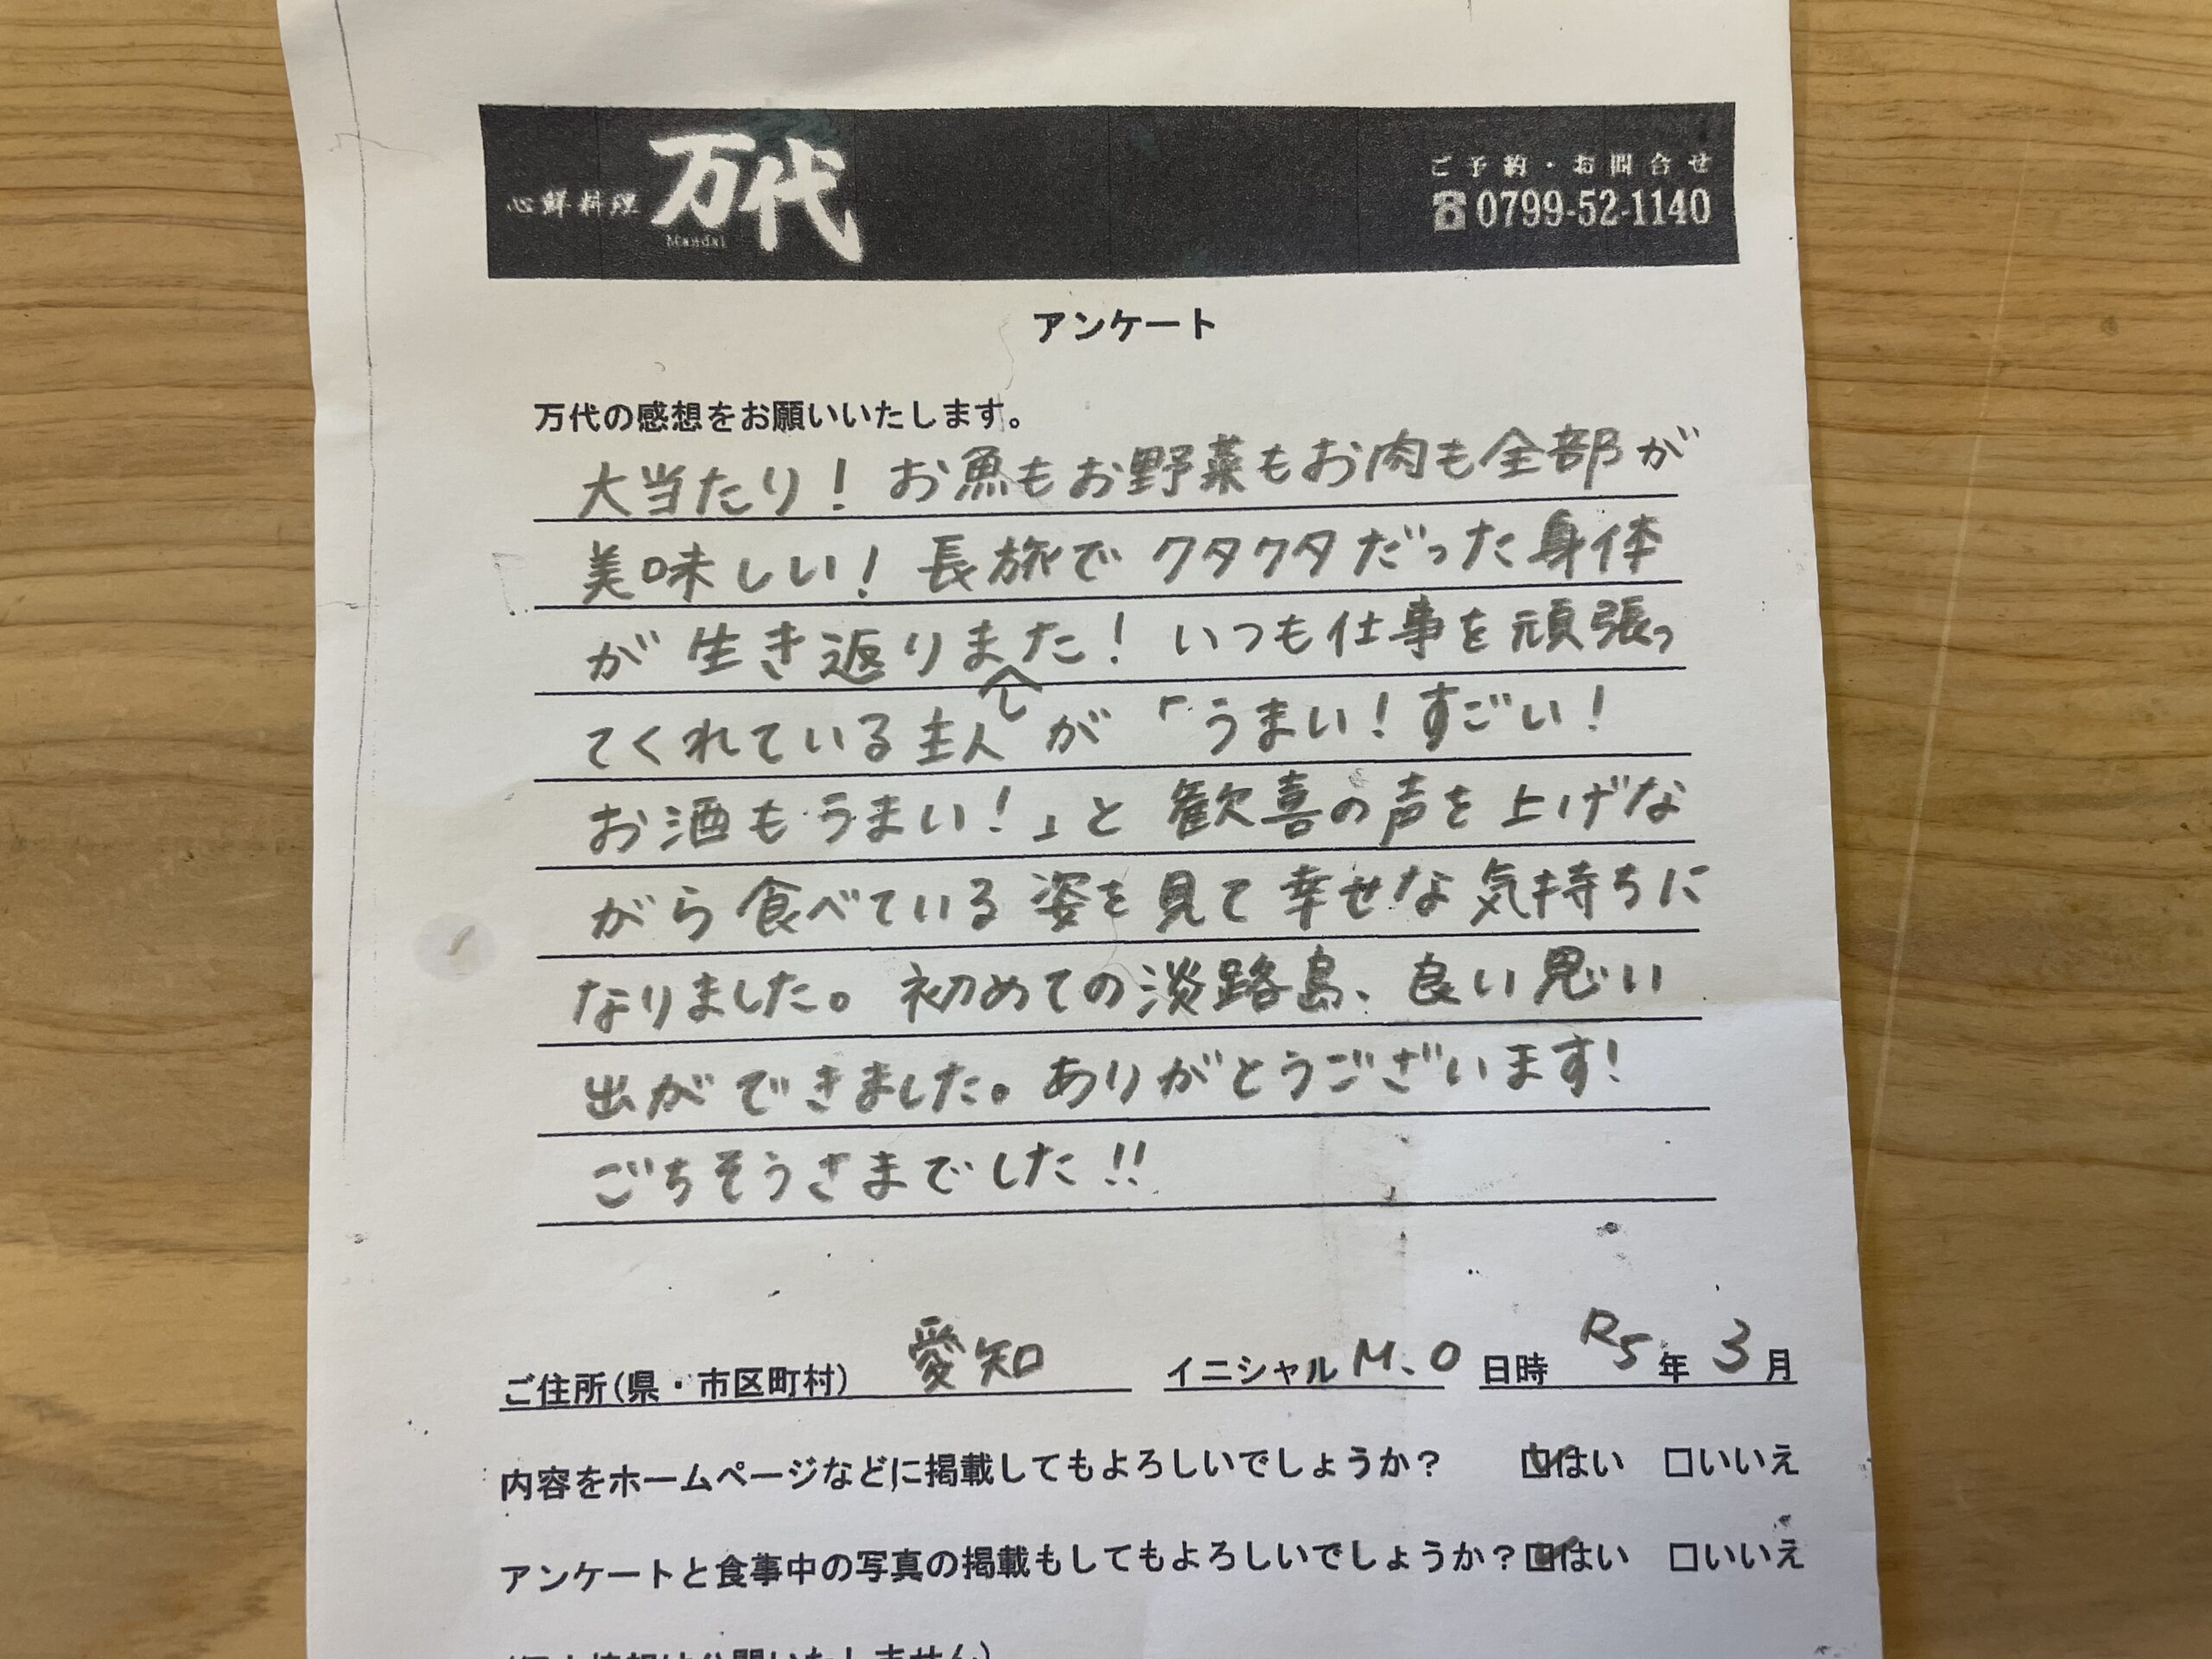 心鮮料理 万代
Mandai
ご予約・お問合せ
☎0799-52-1140
アンケート
万代の感想をお願いいたします。
大当たり！お魚もお野菜もお肉も全部が
美味しい！長旅でクタクタだった身体
が生き返りました！いつも仕事を頑張っ
てくれている主人が「うまい！すごい！
お酒もうまい！」と歓喜の声を上げな
がら食べている姿を見て幸せな気持ちに
なりました。初めての淡路島、良い思い
出ができました。ありがとうございます！
ごちそうさまでした!!
ご住所(県・市区町村) 愛知 イニシャル M.O 日時 R5年 3月
内容をホームページなどに掲載してもよろしいでしょうか？ ☑はい □いいえ
アンケートと食事中の写真の掲載もしてもよろしいでしょうか？☑はい □いいえ